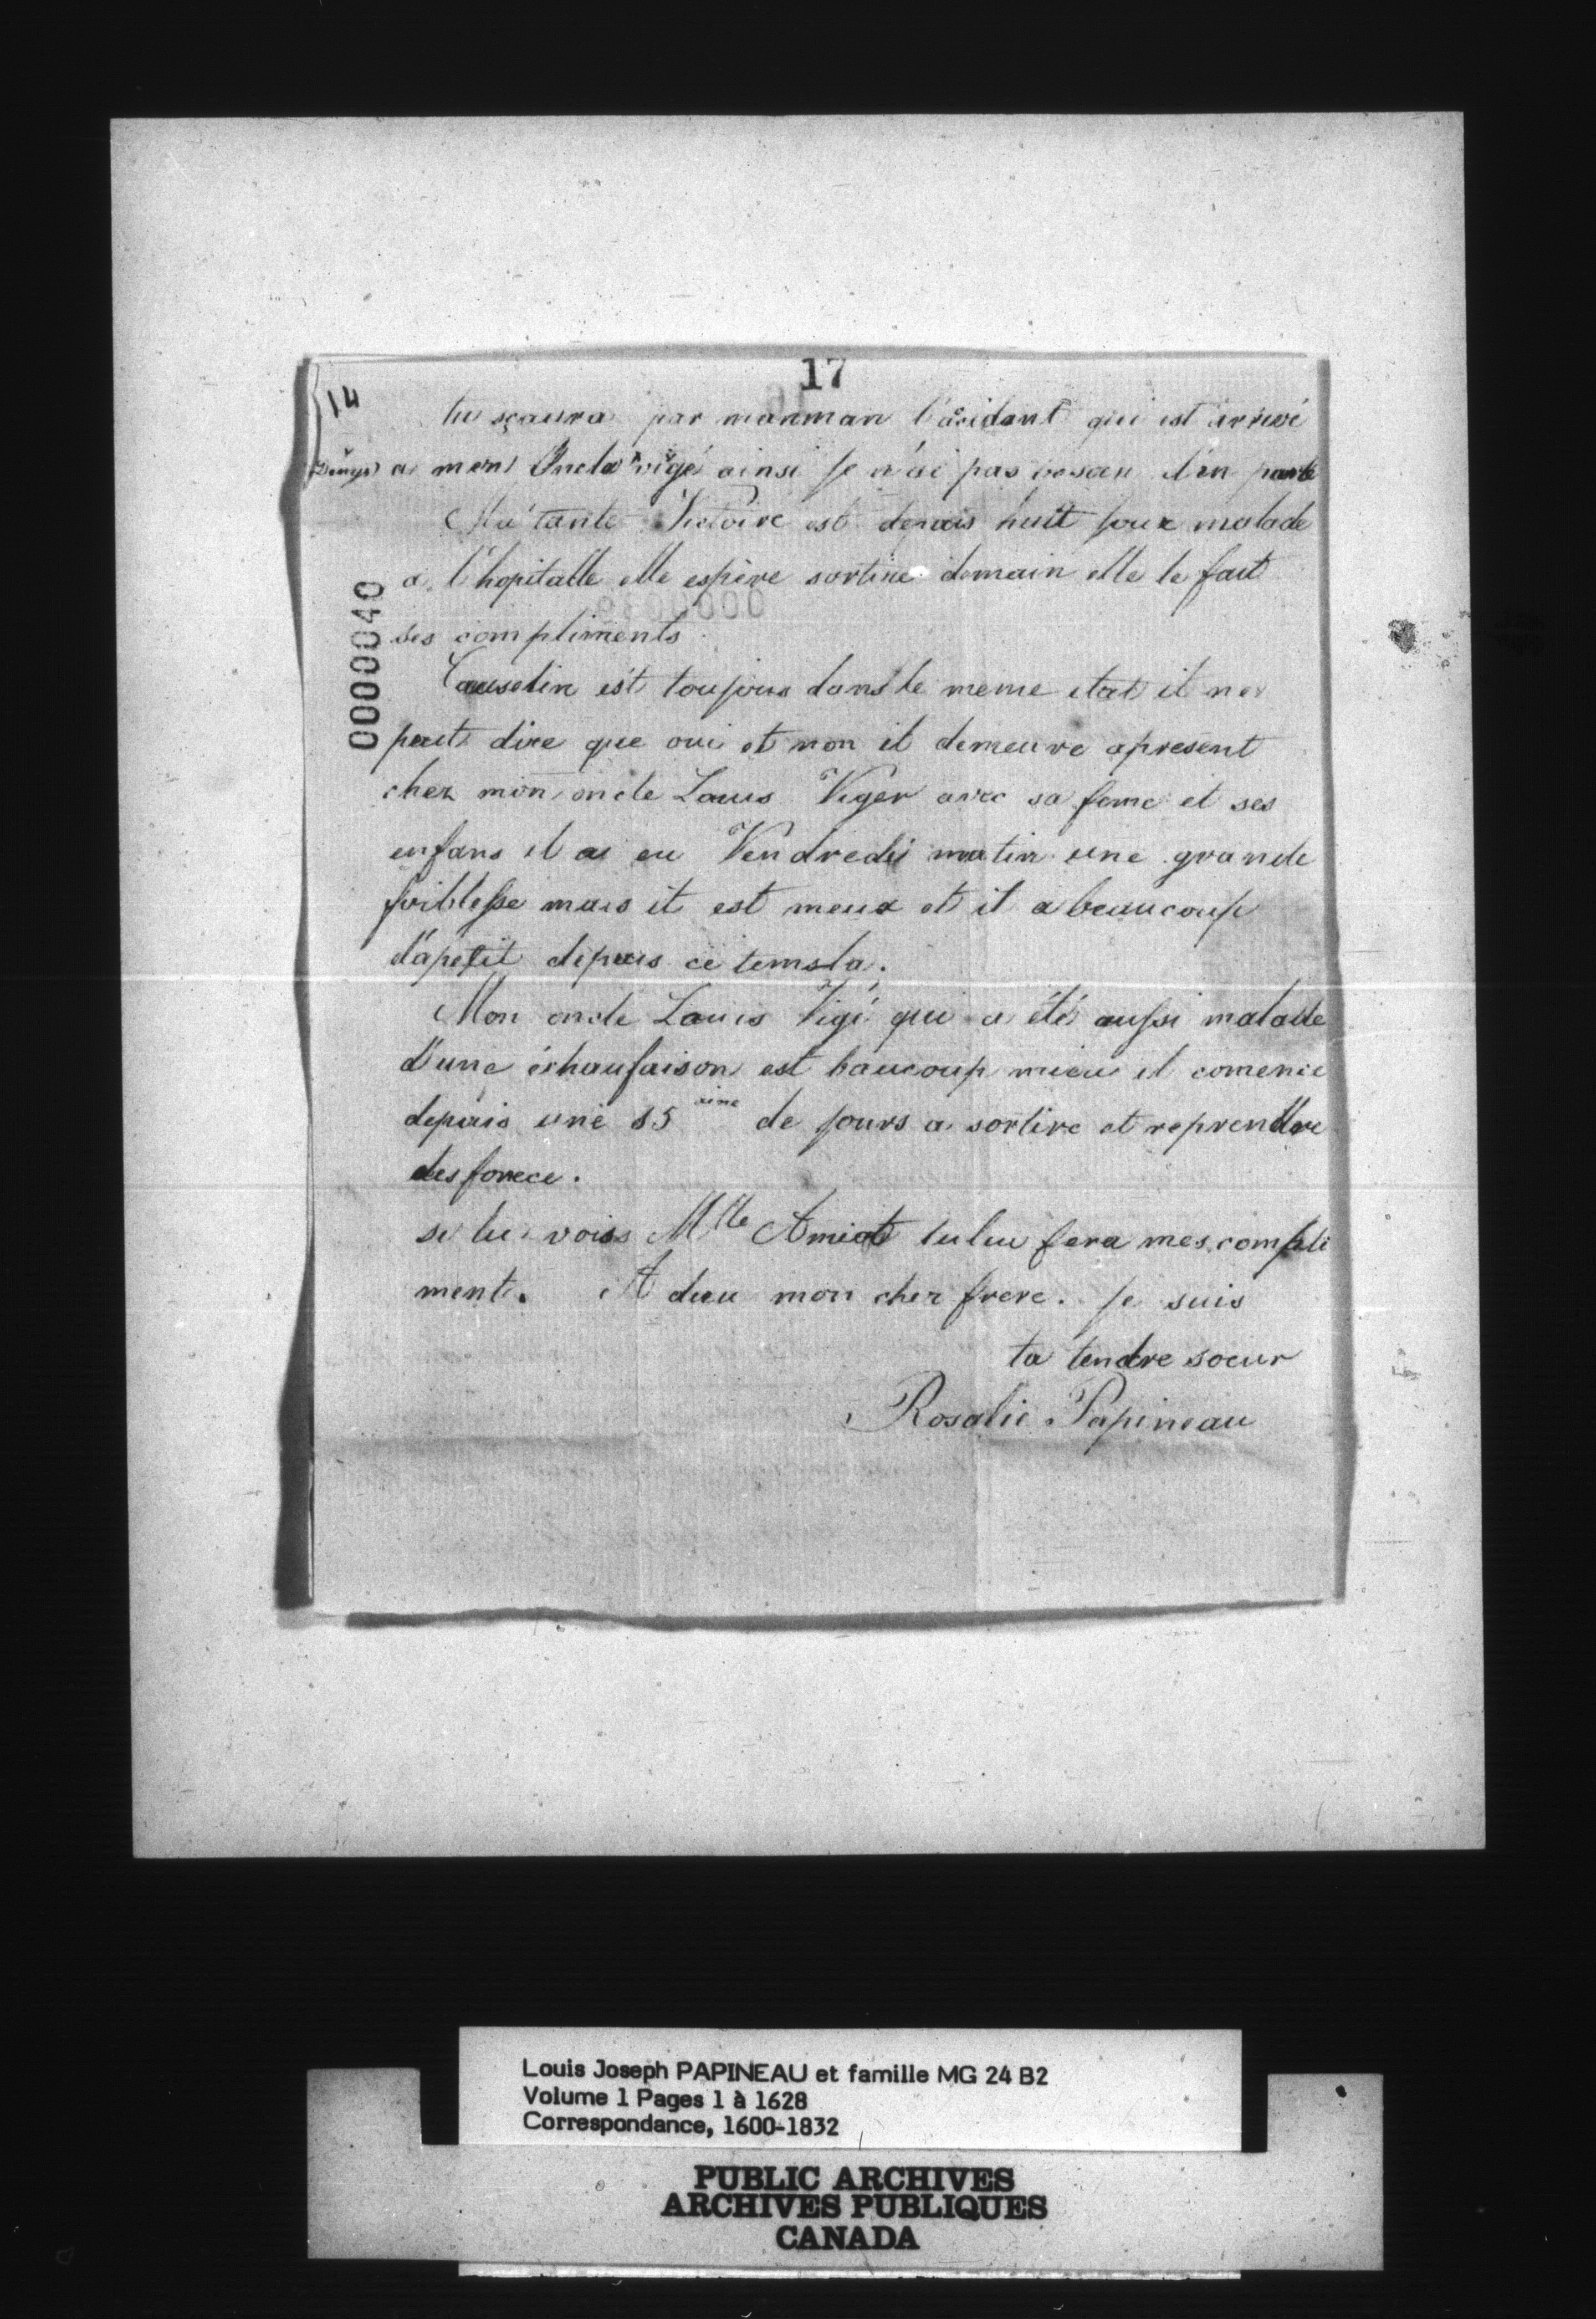 17
14
tu sçaura par manman l'acident qui est arrivé
Denys a mon Oncle vigé ainsi je n'ai pas besoin d'en parlé
Ma tante Victoire est depuis huit jour malade
a l'hopitalle elle espère sortire demain elle te fait
ses compliments
0000040
est toujour dans le meme etat il ne
peut dire que oui et non il demeure apresent
chez mon oncle Louis Viger avec sa feme et ses
enfans il a eu Vendredi matin une grande
foiblesse mais il est meux et il a beaucoup
d'apetit depuis ce temsla.
Mon oncle Louis Vigé qui a été aussi malade
d'une échaufaison est baucoup mieu il comence
depuis une 15 aine de jours a sortire et reprendre
des forece.
si tu vois Mlle Amiot tului fera mes compli
ment. A dieu mon cher frere. je suis
ta tendre soeur
Rosalie Papineau
Louis Joseph PAPINEAU et famille MG 24 B2
Volume 1 Pages 1 à 1628
Correspondance, 1600-1832
PUBLIC ARCHIVES
ARCHIVES PUBLIQUES
CANADA